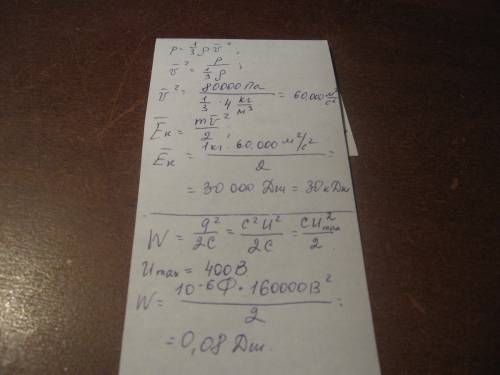 p = 1/3 ρ v̄²;
v̄² = p / (1/3 ρ);
v̄² = 80000 Па / (1/3 · 4 кг/м³) = 60.000 м²/с²
Ēк = mv̄²/2;
Ēк = 1кг · 60.000 м²/с² / 2 =
= 30 000 Дж = 30 кДж
W = q²/2C = C²U²/2C = CU²max/2
Umax = 400 В
W = 10⁻⁶ Ф · 160000 В² / 2 =
= 0,08 Дж.